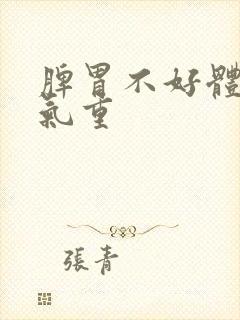 脾胃不好體
氣重
張青